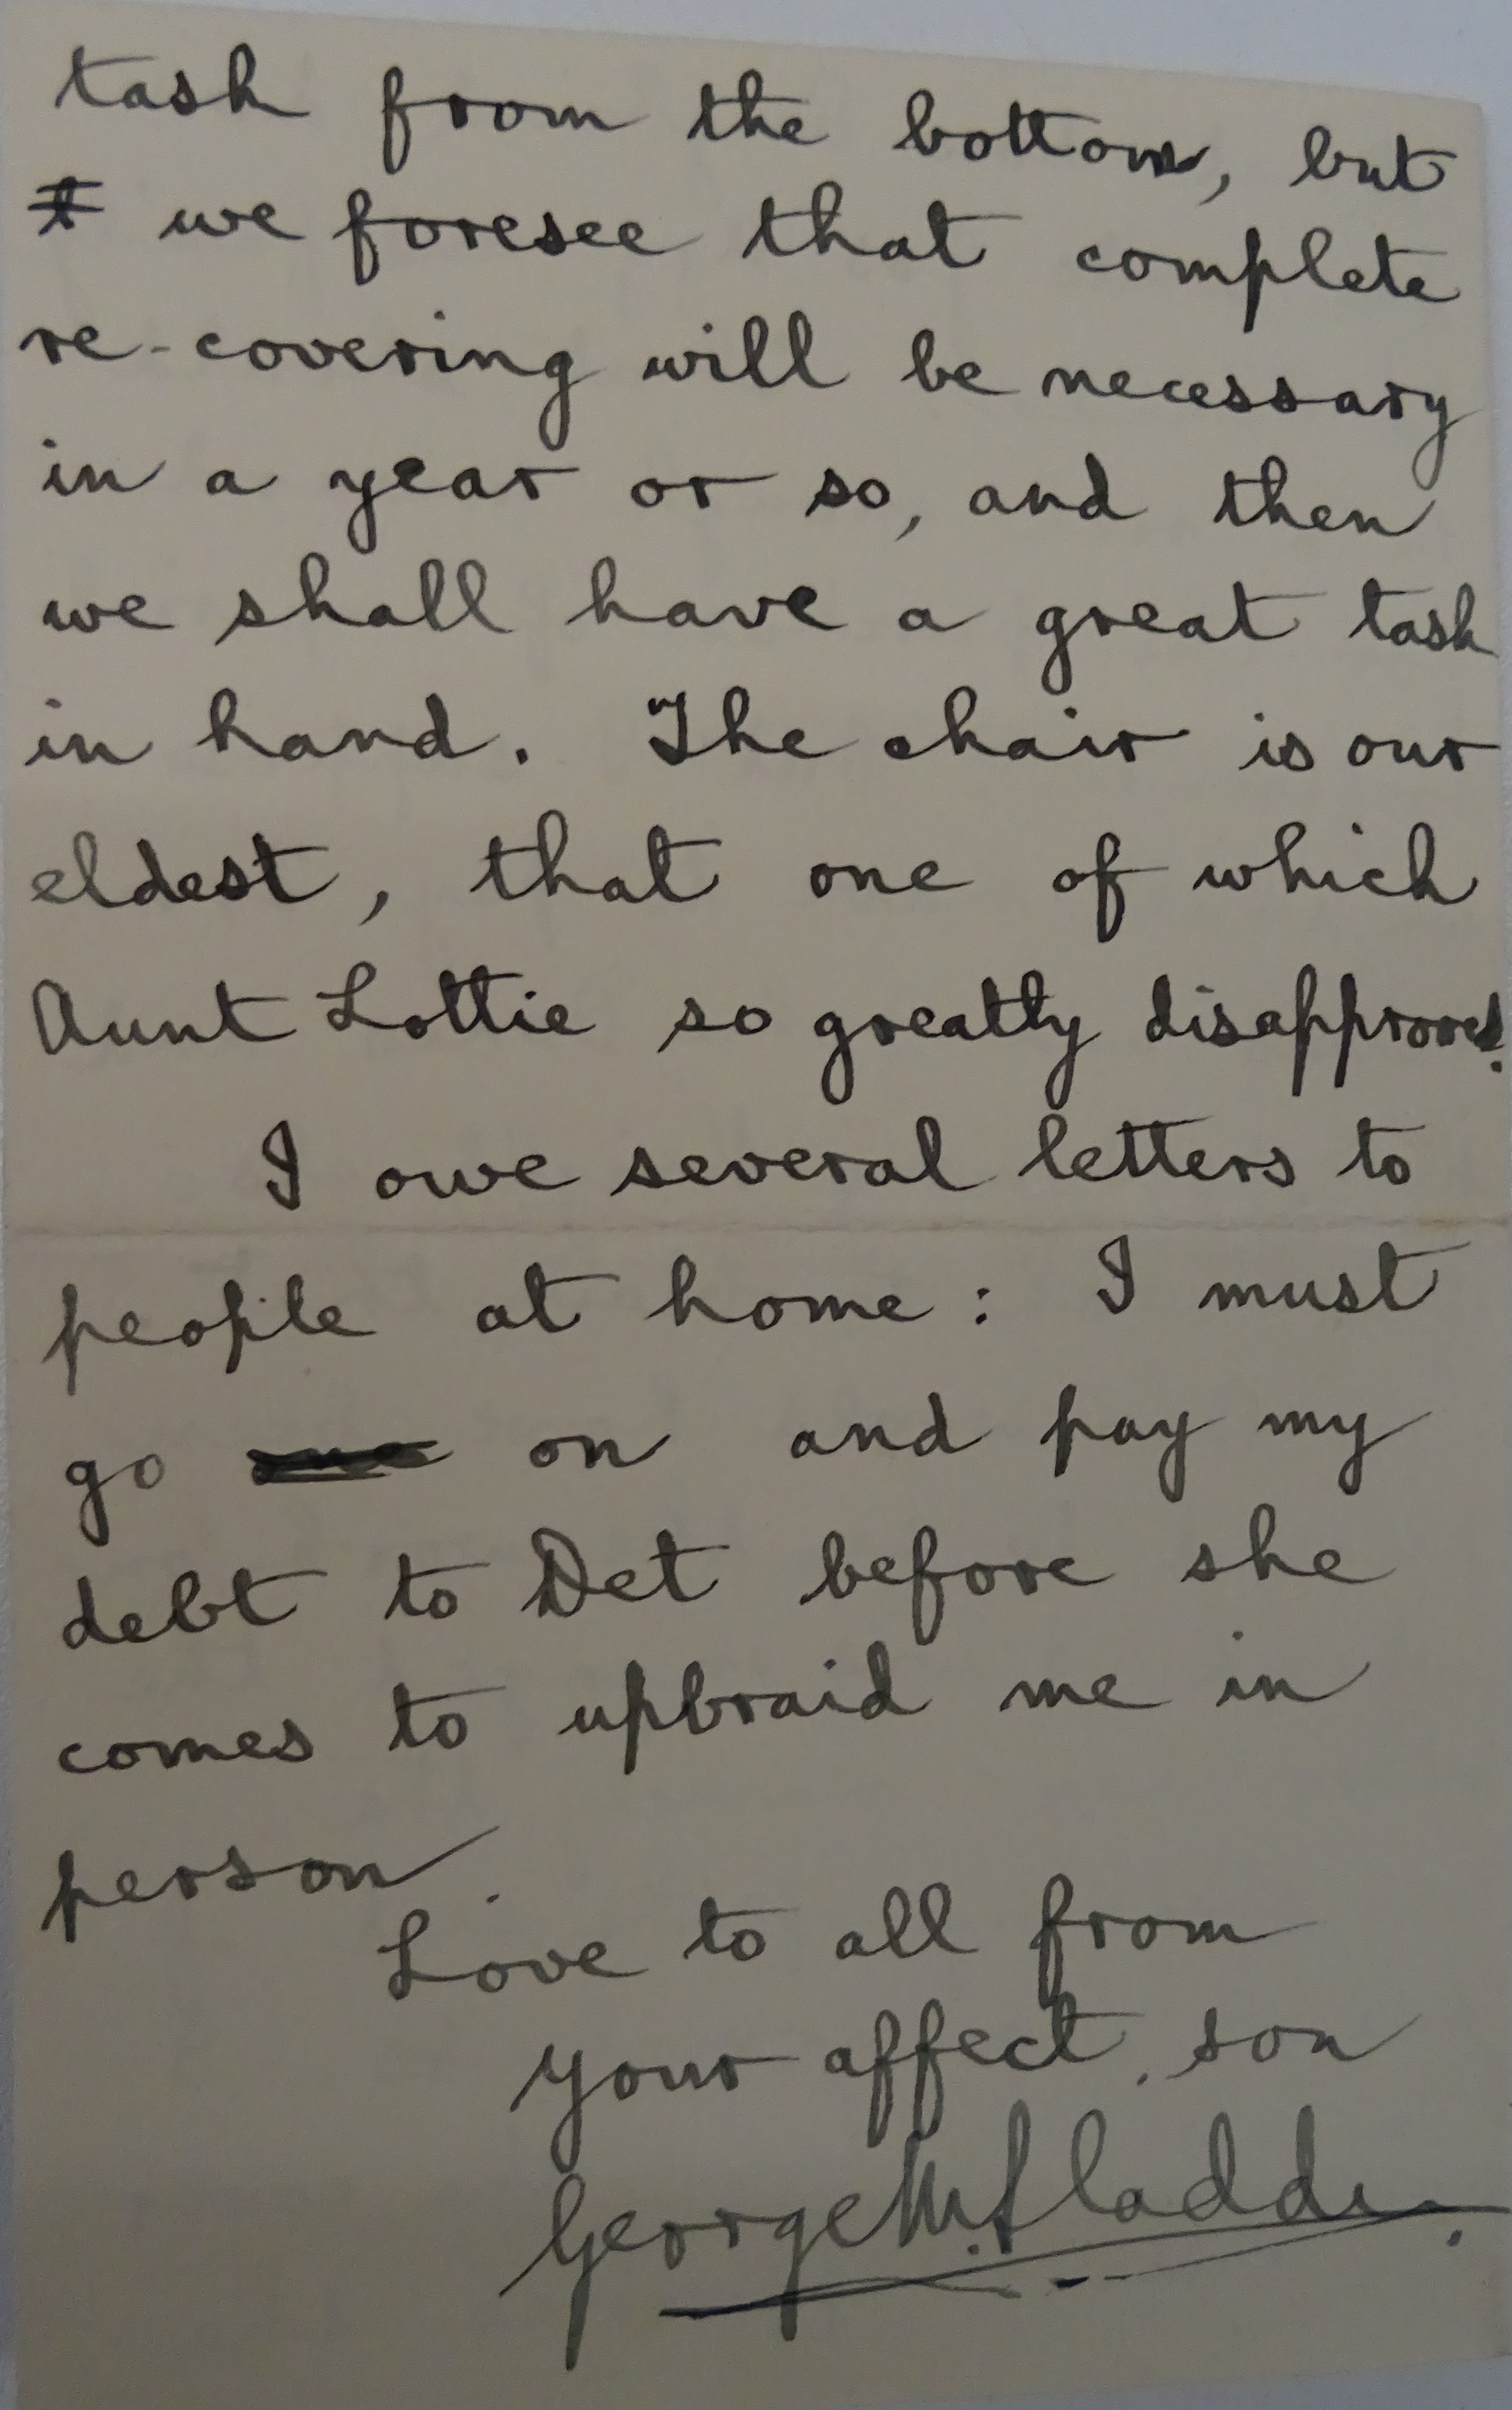 task from the bottom, but
we foresee that complete
re-covering will be necessary
in a year or so, and then
we shall have a great task
in hand. The chair is our
eldest, that one of which
Aunt Lottie so greatly disapproved.
I owe several letters to
people at home: I must
go on and pay my
debt to Det before she
comes to upbraid me in
person.
Love to all from
your affect. son
George W.